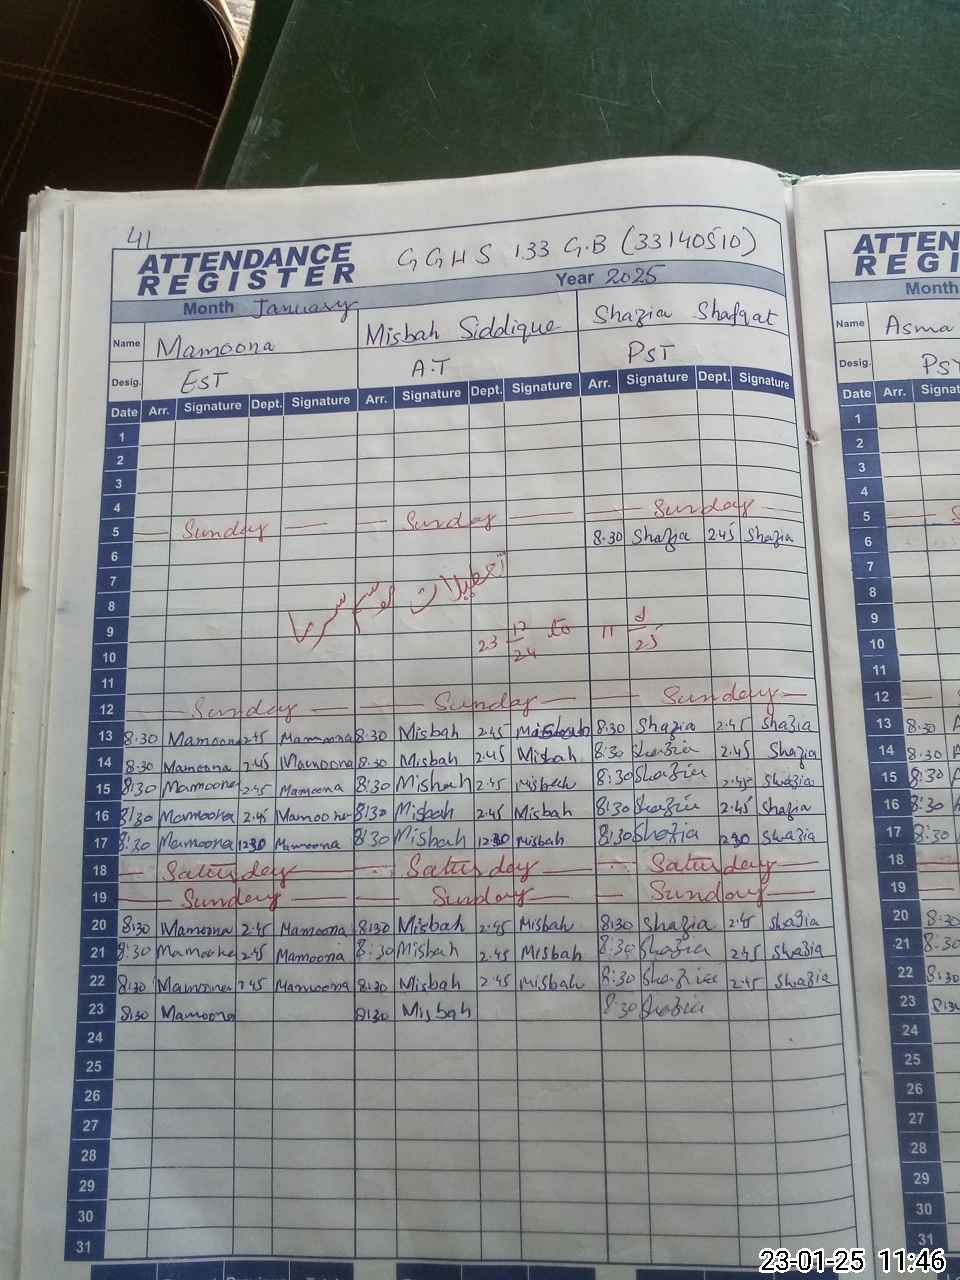 41
ATTENDANCE REGISTER GGHS 133 G.B (33140510)
Month January Year 2025
Name Mamoona Misbah Siddique Shazia Shafqat
Desig. EST A.T PST
Date Arr. Signature Dept. Signature Arr. Signature Dept. Signature Arr. Signature Dept. Signature
1
2
3
4
5 Sunday Sunday Sunday
6 8.30 Shazia 2.45 Shazia
7
8 تعطیلات موسم سرما
9 23 12/24 to 11
10
11
12 Sunday Sunday Sunday
13 8.30 Mamoona 2.45 Mamoona 8.30 Misbah 2.45 Misbah 8.30 Shazia 2.45 Shazia
14 8.30 Mamoona 2.45 Mamoona 8.30 Misbah 2.45 Misbah 8:30 Shazia 2.45 Shazia
15 8:30 Mamoona 2.45 Mamoona 8:30 Misbah 2.45 Misbah 8:30 Shazia 2.45 Shazia
16 8:30 Mamoona 2.45 Mamoona 8:30 Misbah 2.45 Misbah 8:30 Shazia 2.45 Shazia
17 8:30 Mamoona 1230 Mamoona 8:30 Misbah 1230 Misbah 8:30 Shazia Shazia
18 Saturday Saturday Saturday
19 Sunday Sunday Sunday
20 8:30 Mamoona 2.45 Mamoona 8:30 Misbah 2.45 Misbah 8:30 Shazia 2.45 Shazia
21 8:30 Mamoona 2.45 Mamoona 8:30 Misbah 2.45 Misbah 8:30 Shazia 2.45 Shazia
22 8:30 Mamoona 2.45 Mamoona 8:30 Misbah 2.45 Misbah 8:30 Shazia 2.45 Shazia
23 8:30 Mamoona 8:30 Misbah 8:30 Shazia
24
25
26
27
28
29
30
31
ATTEN
REGI
Month
Name Asma
Desig. PST
Date Arr. Signat
1
2
3
4
5
6
7
8
9
10
11
12
13 8:30 A
14 8:30 A
15 8:30 A
16 8:30
17 8:30
18
19
20 8:30
21 8:30
22 8:30
23 8:30
24
25
26
27
28
29
30
31
23-01-25 11:46